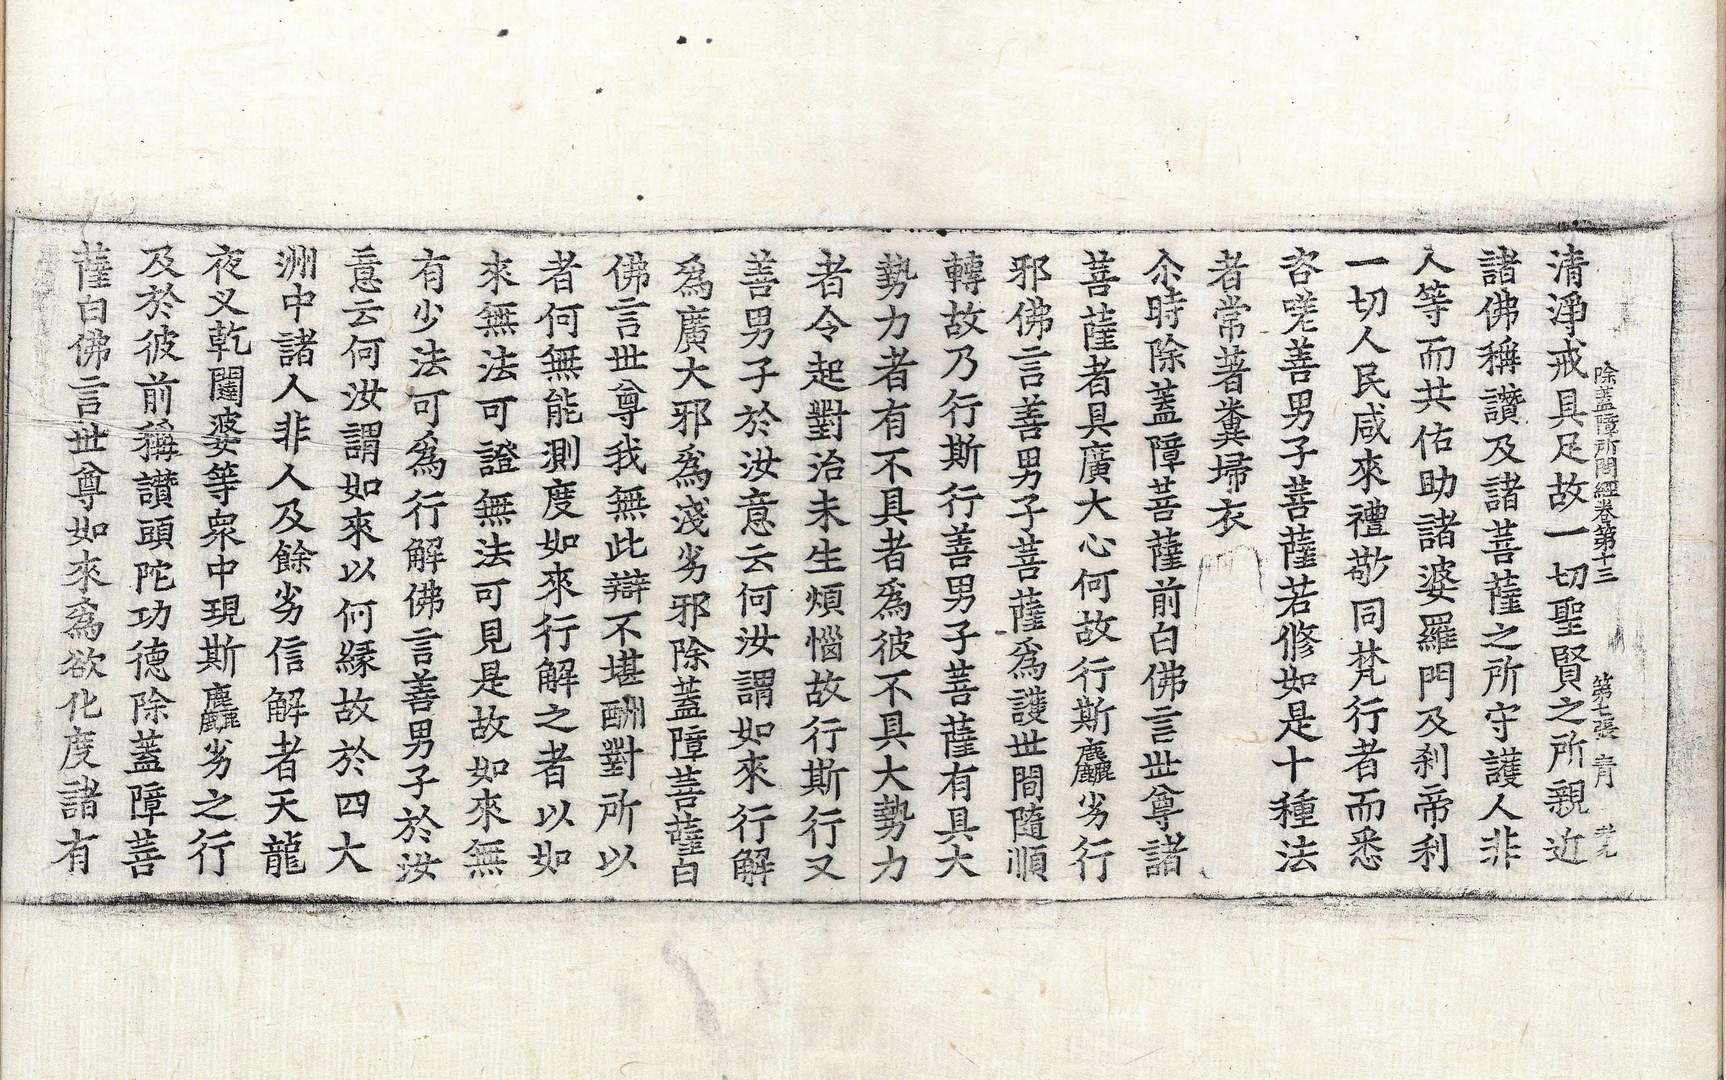 除蓋障所問經卷第十三 第七張 青
清淨戒具足故一切聖賢之所親近
諸佛稱讚及諸菩薩之所守護人非
人等而共佑助諸婆羅門及剎帝利
一切人民咸來禮敬同梵行者而悉
咨嗟善男子菩薩若修如是十種法
者常著糞埽衣
尒時除蓋障菩薩前白佛言世尊諸
菩薩者具廣大心何故行斯麤劣行
邪佛言善男子菩薩爲護世間隨順
轉故乃行斯行善男子菩薩有具大
勢力者有不具者爲彼不具大勢力
者令起對治未生煩惱故行斯行又
善男子於汝意云何汝謂如來行解
爲廣大邪爲淺劣邪除蓋障菩薩白
佛言世尊我無此辯不堪酬對所以
者何無能測度如來行解之者以如
來無法可證無法可見是故如來無
有少法可爲行解佛言善男子於汝
意云何汝謂如來以何緣故於四大
洲中諸人非人及餘劣信解者天龍
夜叉乾闥婆等衆中現斯麤劣之行
及於彼前稱讚頭陀功德除蓋障菩
薩白佛言世尊如來爲欲化度諸有